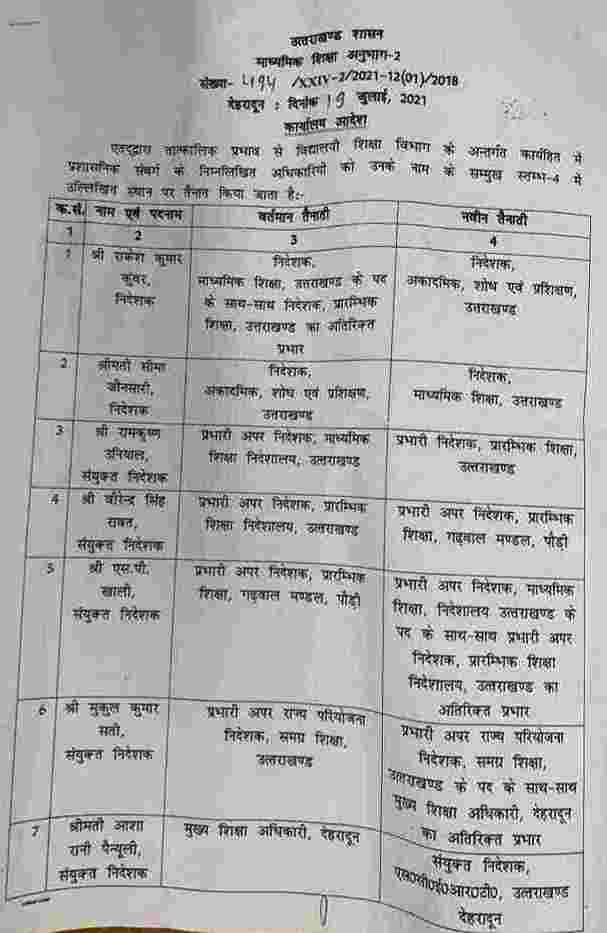 उत्तराखण्ड शासन
माध्यमिक शिक्षा अनुभाग-2
संख्या- 494 /XXIV-2/2021-12(01)/2018
देहरादून : दिनांक 19 जुलाई, 2021
कार्यालय आदेश
एतद्द्वारा तात्कालिक प्रभाव से विद्यालयी शिक्षा विभाग के अन्तर्गत कार्यहित में
प्रशासनिक संवर्ग के निम्नलिखित अधिकारियों को उनके नाम के सम्मुख स्तम्भ-4 में
उल्लिखित स्थान पर तैनात किया जाता है:-
क.सं. नाम एवं पदनाम वर्तमान तैनाती नवीन तैनाती
1 2 3 4
1 श्री राकेश कुमार
कुंवर,
निदेशक
निदेशक,
माध्यमिक शिक्षा, उत्तराखण्ड के पद
के साथ-साथ निदेशक, प्रारम्भिक
शिक्षा, उत्तराखण्ड का अतिरिक्त
प्रभार
निदेशक,
अकादमिक, शोध एवं प्रशिक्षण,
उत्तराखण्ड
2 श्रीमती सीमा
जौनसारी,
निदेशक
निदेशक,
अकादमिक, शोध एवं प्रशिक्षण,
उत्तराखण्ड
निदेशक,
माध्यमिक शिक्षा, उत्तराखण्ड
3 श्री रामकृष्ण
उनियाल,
संयुक्त निदेशक
प्रभारी अपर निदेशक, माध्यमिक
शिक्षा निदेशालय, उत्तराखण्ड
प्रभारी निदेशक, प्रारम्भिक शिक्षा,
उत्तराखण्ड
4 श्री वीरेन्द्र सिंह
रावत,
संयुक्त निदेशक
प्रभारी अपर निदेशक, प्रारम्भिक
शिक्षा निदेशालय, उत्तराखण्ड
प्रभारी अपर निदेशक, प्रारम्भिक
शिक्षा, गढ़वाल मण्डल, पौड़ी
5 श्री एस.पी.
खाली,
संयुक्त निदेशक
प्रभारी अपर निदेशक, प्रारम्भिक
शिक्षा, गढ़वाल मण्डल, पौड़ी
प्रभारी अपर निदेशक, माध्यमिक
शिक्षा, निदेशालय उत्तराखण्ड के
पद के साथ-साथ प्रभारी अपर
निदेशक, प्रारम्भिक शिक्षा
निदेशालय, उत्तराखण्ड का
अतिरिक्त प्रभार
6 श्री मुकुल कुमार
सती,
संयुक्त निदेशक
प्रभारी अपर राज्य परियोजना
निदेशक, समग्र शिक्षा,
उत्तराखण्ड
प्रभारी अपर राज्य परियोजना
निदेशक, समग्र शिक्षा,
उत्तराखण्ड के पद के साथ-साथ
मुख्य शिक्षा अधिकारी, देहरादून
का अतिरिक्त प्रभार
7 श्रीमती आशा
रानी पैन्यूली,
संयुक्त निदेशक
मुख्य शिक्षा अधिकारी, देहरादून
संयुक्त निदेशक,
एस०सी०ई०आर०टी०, उत्तराखण्ड
देहरादून